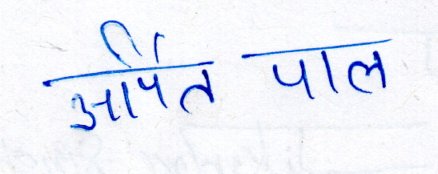 अर्पित पाल